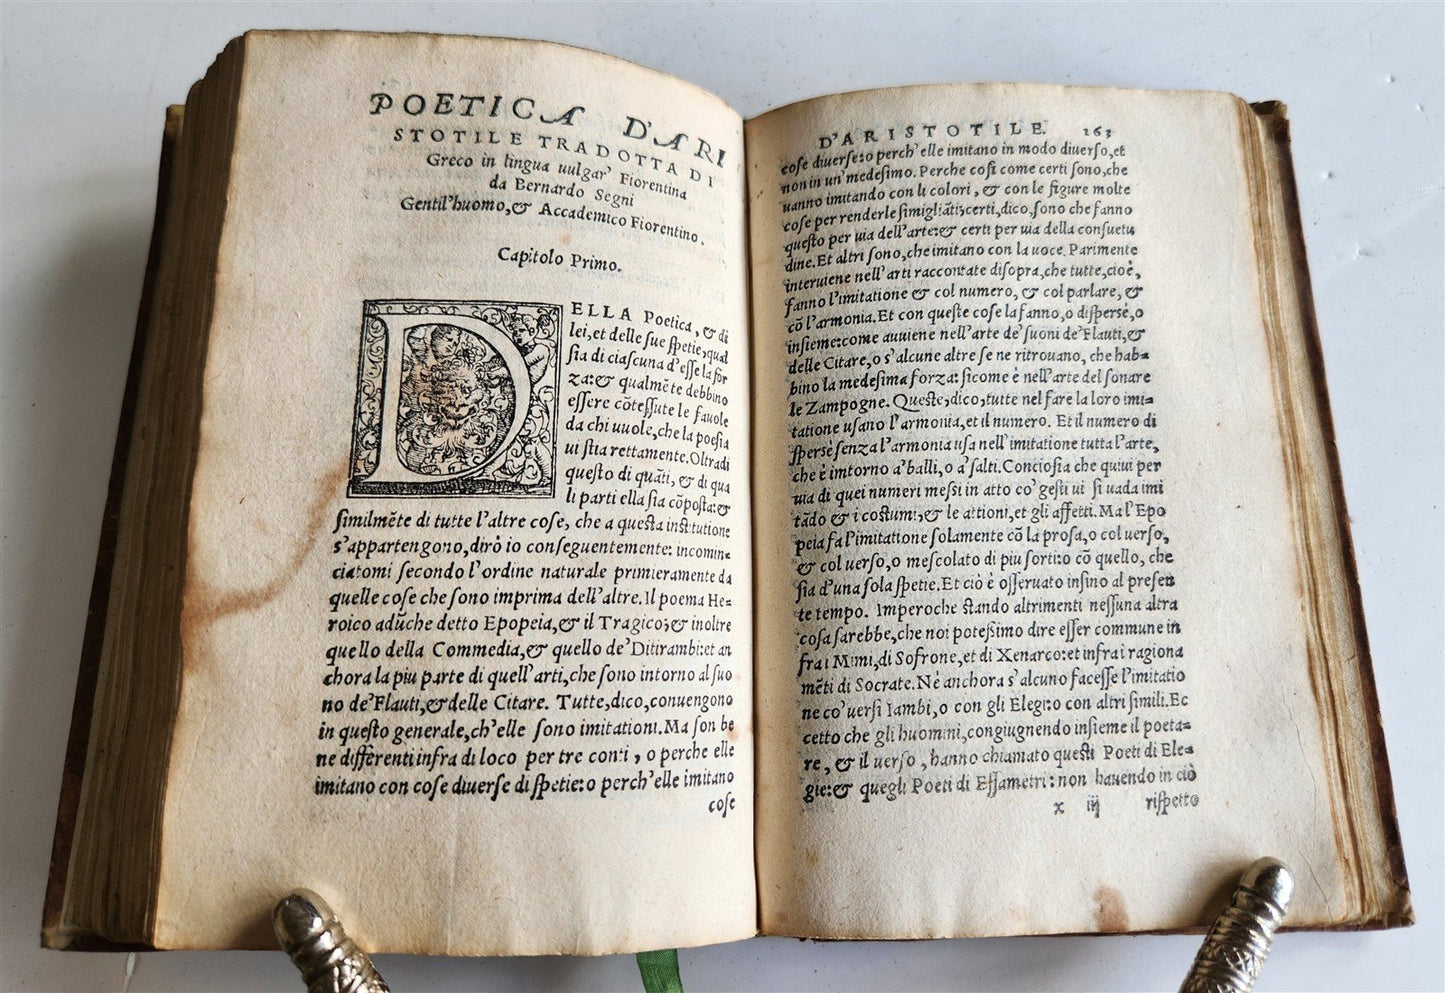 POETICA D'ARI
STOTILE TRADOTTA DI
Greco in lingua uulgar' Fiorentina
da Bernardo Segni
Gentil'huomo,& Accademico Fiorentino.
Capitolo Primo.
DELLA Poetica, & di
lei,et delle sue spetie,qual
sia di ciascuna d'esse la for
za:& qualmẽte debbino
essere cõtessute le fauole
da chi uuole,che la poesia
ui stia rettamente.Oltradi
questo di quãti, & di qua
li parti ella sia cõposta:&
similmẽte di tutte l'altre cose, che a questa institutione
s'appartengono,dirò io conseguentemente: incomin=
ciatomi secondo l'ordine naturale primieramente da
quelle cose che sono imprima dell'altre. Il poema He=
roico adũche detto Epopeia,& il Tragico;& inoltre
quello della Commedia,& quello de'Ditirambi:et an
chora la piu parte di quell'arti,che sono intorno al suo
no de'Flauti,& delle Citare. Tutte,dico,conuengono
in questo generale,ch'elle sono imitationi. Ma son be
ne differenti infra di loco per tre conti, o perche elle
imitano con cose diuerse di spetie:o perch'elle imitano
cose
D'ARISTOTILE. 163
cose diuerse:o perch'elle imitano in modo diuerso,et
non in un'medesimo. Perche cosi come certi sono,che
uanno imitando con li colori, & con le figure molte
cose per renderle simigliãti;certi,dico,sono che fanno
questo per uia dell'arte:& certi per uia della consuetu
dine.Et altri sono,che imitano con la uoce. Parimente
interuiene nell'arti raccontate disopra,che tutte,cioè,
fanno l'imitatione & col numero, & col parlare, &
cõ l'armonia. Et con queste cose la fanno,o dispersè,o
insieme:come auuiene nell'arte de'suoni de'Flauti,&
delle Citare,o s'alcune altre se ne ritrouano, che hab=
bino la medesima forza: sicome è nell'arte del sonare
le Zampogne. Queste,dico,tutte nel fare la loro imi=
tatione usano l'armonia,et il numero. Et il numero di
spersè senza l'armonia usa nell'imitatione tutta l'arte,
che è imtorno a'balli,o a'salti.Conciosia che quiui per
uia di quei numeri messi in atto co'gesti ui si uada imi
tãdo & i costumi,& le attioni,et gli affetti. Ma l'Epo
peia fa l'imitatione solamente cõ la prosa,o col uerso,
& col uerso,o mescolato di piu sorti:o cõ quello, che
sia d'una sola spetie.Et ciò è osseruato insino al presen
te tempo. Imperoche stando altrimenti nessuna altra
cosa sarebbe,che noi potessimo dire esser commune in
fra i Mimi,di Sofrone,et di Xenarco:et infra i ragiona
mẽti di Socrate.Nè anchora s'alcuno facesse l'imitatio
ne co'uersi Iambi,o con gli Elegi:o con altri simili.Ec
cetto che gli huomini,congiugnendo insieme il poeta=
re, & il uerso, hanno chiamato questi Poeti di Ele=
gie:& quegli Poeti di Essametri: non hauendo in ciò
x iij rispetto